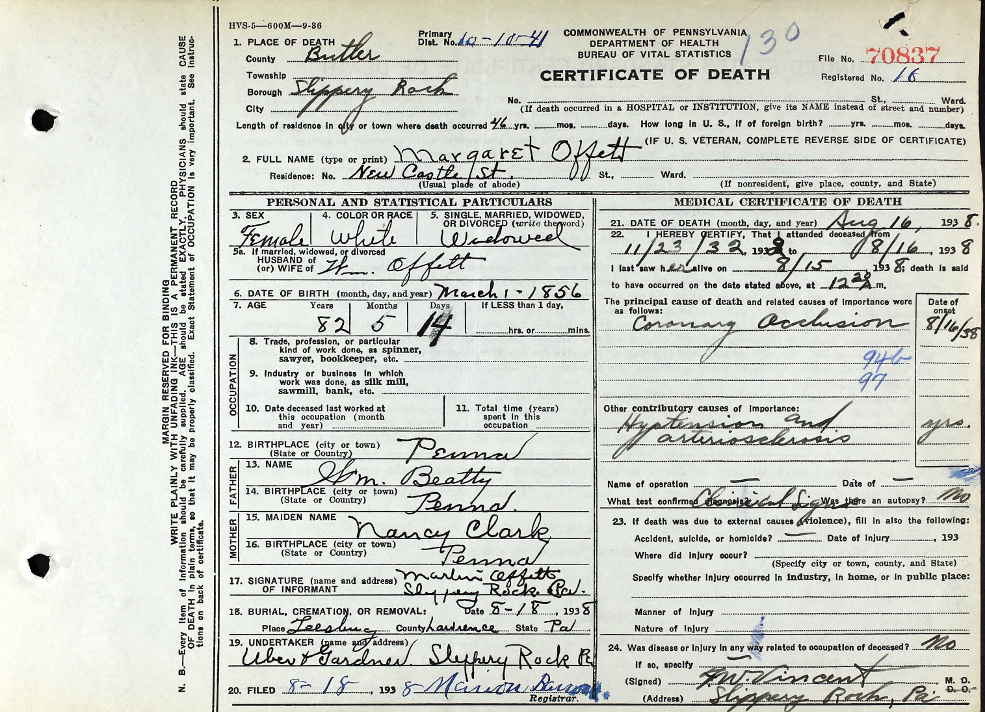 HVS-5—600M—9-36
Primary Dist. No. 10-10-41
COMMONWEALTH OF PENNSYLVANIA
DEPARTMENT OF HEALTH
BUREAU OF VITAL STATISTICS
130
CERTIFICATE OF DEATH
File No. 70837
Registered No. 16
1. PLACE OF DEATH
County Butler
Township
Borough Slippery Rock
City
No. St., Ward.
(If death occurred in a HOSPITAL or INSTITUTION, give its NAME instead of street and number)
Length of residence in city or town where death occurred 46 yrs. mos. days. How long in U. S., if of foreign birth? yrs. mos. days.
(IF U. S. VETERAN, COMPLETE REVERSE SIDE OF CERTIFICATE)
2. FULL NAME (type or print) Margaret Offett
Residence: No. New Castle St. St., Ward.
(Usual place of abode) (If nonresident, give place, county, and State)
PERSONAL AND STATISTICAL PARTICULARS
3. SEX Female
4. COLOR OR RACE White
5. SINGLE, MARRIED, WIDOWED, OR DIVORCED (write the word) Widowed
5a. If married, widowed, or divorced
HUSBAND of
(or) WIFE of Wm. Offett
6. DATE OF BIRTH (month, day, and year) March 1-1856
7. AGE Years Months Days If LESS than 1 day,
82 5 14 hrs. or mins.
OCCUPATION
8. Trade, profession, or particular
kind of work done, as spinner,
sawyer, bookkeeper, etc.
9. Industry or business in which
work was done, as silk mill,
sawmill, bank, etc.
10. Date deceased last worked at
this occupation (month
and year)
11. Total time (years)
spent in this
occupation
12. BIRTHPLACE (city or town)
(State or Country) Penna
FATHER
13. NAME Wm. Beatty
14. BIRTHPLACE (city or town)
(State or Country) Penna.
MOTHER
15. MAIDEN NAME Nancy Clark
16. BIRTHPLACE (city or town)
(State or Country) Penna
17. SIGNATURE (name and address)
OF INFORMANT Offett
Slippery Rock, Pa.
18. BURIAL, CREMATION, OR REMOVAL: Date 8-18, 1938
Place Leesburg County Lawrence State Pa
19. UNDERTAKER (name and address)
Uber & Gardner. Slippery Rock Pa
20. FILED 8-18, 1938 Marion
Registrar.
MEDICAL CERTIFICATE OF DEATH
21. DATE OF DEATH (month, day, and year) Aug 16, 1938.
22. I HEREBY CERTIFY, That I attended deceased from
11/23/32, 193 to 8/16, 1938
I last saw her alive on 8/15 1938; death is said
to have occurred on the date stated above, at m.
The principal cause of death and related causes of importance were
as follows:
Date of onset
Coronary Occlusion 8/16/38
94b
97
Other contributory causes of importance:
Hyptension and yrs.
arteriosclerosis
Name of operation — Date of —
What test confirmed diagnosis? Clinical Signs Was there an autopsy? No
23. If death was due to external causes (violence), fill in also the following:
Accident, suicide, or homicide? — Date of injury , 193
Where did injury occur?
(Specify city or town, county, and State)
Specify whether injury occurred in industry, in home, or in public place:
Manner of injury
Nature of injury
24. Was disease or injury in any way related to occupation of deceased? No
If so, specify —
(Signed) Vincent M. D.
D. O.
(Address) Slippery Rock, Pa.
MARGIN RESERVED FOR BINDING
WRITE PLAINLY WITH UNFADING INK—THIS IS A PERMANENT RECORD
N. B.—Every item of information should be carefully supplied. AGE should be stated EXACTLY. PHYSICIANS should state CAUSE
OF DEATH in plain terms, so that it may be properly classified. Exact Statement of OCCUPATION is very important. See instruc-
tions on back of certificate.